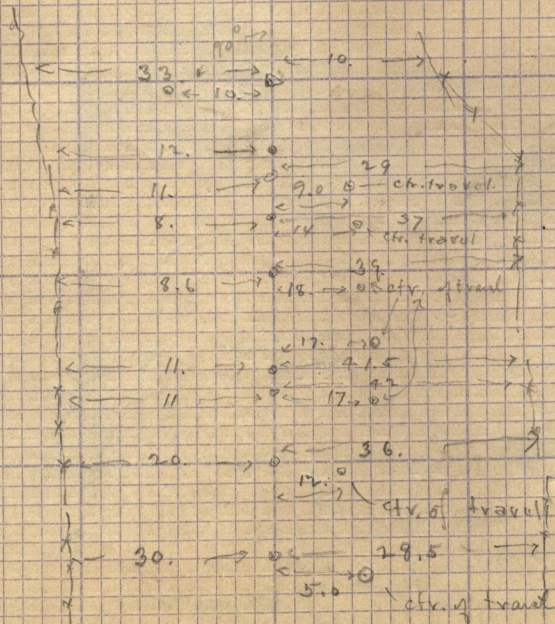 90°
33. 10.
10.
12.
29
11. 9.0 ctr. travel
8. 37
14 ctr. travel
39.
8.6 18. ctr. of travel
17.
11. 41.5
42
11 17
36.
20.
12.
ctr. of travel
30. 28.5
5.0
ctr. of travel